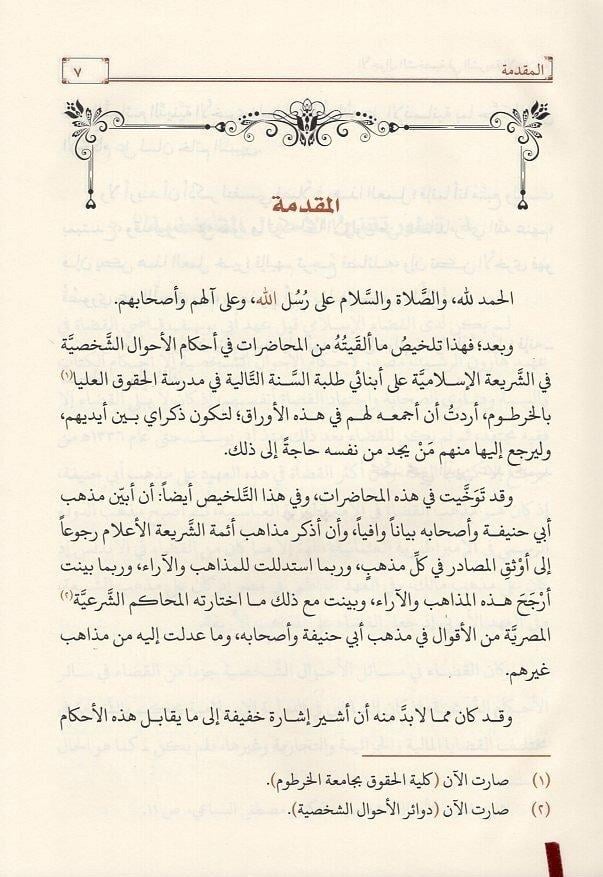 المقدمة
٧
المقدمة
الحمد لله، والصَّلاة والسَّلام على رُسُل الله، وعلى آلهم وأصحابهم.
وبعد؛ فهذا تلخيصُ ما ألقَيتُهُ من المحاضرات في أحكام الأحوال الشَّخصيَّة
في الشَّريعة الإسلاميَّة على أبنائي طلبة السَّنة التَّالية في مدرسة الحقوق العليا(١)
بالخرطوم، أردتُ أن أجمعه لهم في هذه الأوراق؛ لتكون ذكراي بين أيديهم،
وليرجع إليها منهم مَنْ يجد من نفسه حاجةً إلى ذلك.
وقد تَوَخَّيت في هذه المحاضرات، وفي هذا التَّلخيص أيضاً: أن أبيّن مذهب
أبي حنيفة وأصحابه بياناً وافياً، وأن أذكر مذاهب أئمة الشَّريعة الأعلام رجوعاً
إلى أوْثقِ المصادر في كلِّ مذهبٍ، وربما استدللت للمذاهب والآراء، وربما بينت
أرْجَحَ هذه المذاهب والآراء، وبينت مع ذلك ما اختارته المحاكم الشَّرعيَّة(٢)
المصريَّة من الأقوال في مذهب أبي حنيفة وأصحابه، وما عدلت إليه من مذاهب
غيرهم.
وقد كان مما لابدَّ منه أن أشير إشارة خفيفة إلى ما يقابل هذه الأحكام
(١) صارت الآن (كلية الحقوق بجامعة الخرطوم).
(٢) صارت الآن (دوائر الأحوال الشخصية).